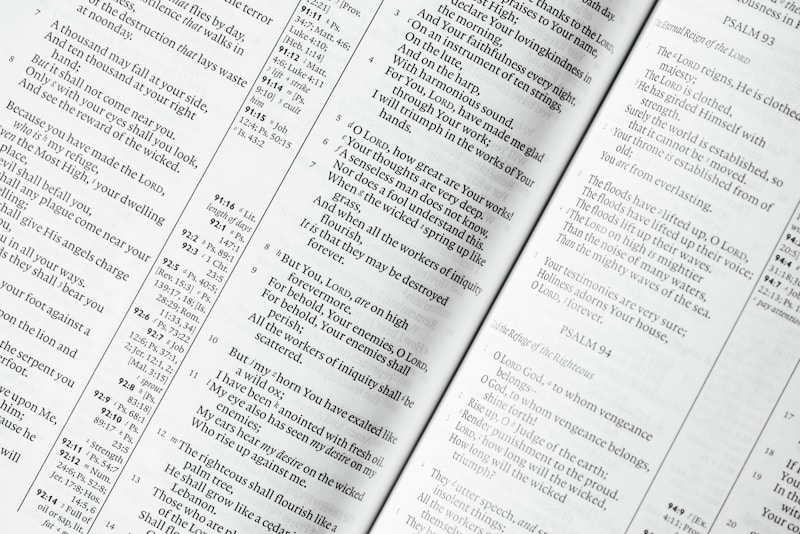 flies by day,
silence that walks in
of the destruction that lays waste
at noonday.
7 A thousand may fall at your side,
And ten thousand at your right
hand;
But it shall not come near you.
Only g with your eyes shall you look,
And see the reward of the wicked.
Because you have made the LORD,
Who is h my refuge,
Even the Most High, i your dwelling
place,
evil shall befall you,
shall any plague come near your
shall give His angels charge
you,
in all your ways.
hands they shall 3 bear you
your foot against a
upon the lion and
the serpent you
underfoot.
love upon Me,
him;
because he
will
91:11
34:7; Matt. 4:6;
Luke 4:10;
[Heb. 1:14]
91:12 Matt.
4:6; Luke 4:11
3 lift
91:14
9:10] 5 exalt
him
91:15 Job
12:4; Ps. 50:15
Is. 43:2
91:16 6 Lit.
length of days
92:1 a Ps.
147:1
92:2 b Ps. 89:1
92:3 c 1 Chr.
23:5
92:5 d Ps. 40:5;
[Rev. 15:3] e Ps.
139:17, 18; [Is.
28:29; Rom.
11:33, 34]
92:6 f Ps. 73:22
92:7 g Job
12:6; Ps. 37:1,
2; Jer. 12:1, 2;
[Mal. 3:15]
sprout
92:8 h [Ps.
83:18]
92:9 i Ps. 68:1
92:10 j Ps.
89:17 k Ps.
23:5
92:11
Strength
l Ps. 54:7
92:12 m Num.
24:6; Ps. 52:8;
Jer. 17:8; Hos.
14:5, 6
92:14 3 Full of
oil or sap, lit.
fat
thanks to the LORD,
praises to Your name,
Most High;
declare Your lovingkindness in
the morning,
And Your faithfulness every night,
3 On an instrument of ten strings,
On the lute,
And on the harp,
With harmonious sound.
4 For You, LORD, have made me glad
through Your work;
I will triumph in the works of Your
hands.
5 d O LORD, how great are Your works!
e Your thoughts are very deep.
6 f A senseless man does not know,
Nor does a fool understand this.
7 When g the wicked 1 spring up like
grass,
And when all the workers of iniquity
flourish,
It is that they may be destroyed
forever.
8 h But You, LORD, are on high
forevermore.
9 For behold, Your enemies, O LORD,
For behold, Your enemies shall
perish;
All the workers of iniquity shall i be
scattered.
10 But j my 2 horn You have exalted like
a wild ox;
I have been k anointed with fresh oil.
11 l My eye also has seen my desire on my
enemies;
My ears hear my desire on the wicked
Who rise up against me.
12 m The righteous shall flourish like a
palm tree,
He shall grow like a cedar in
Lebanon.
13 Those who are
of the LORD
Shall
14
PSALM 93
The Eternal Reign of the LORD
The LORD reigns, He is clothed
majesty;
The LORD is clothed,
He has girded Himself with
strength.
Surely the world is established, so
that it cannot be moved.
Your throne is established from of
old;
You are from everlasting.
The floods have lifted up, O LORD,
The floods have lifted up their voice;
The floods lift up their waves.
The LORD on high is mightier
Than the noise of many waters,
Than the mighty waves of the sea.
Your testimonies are very sure;
Holiness adorns Your house,
O LORD, forever.
PSALM 94
God the Refuge of the Righteous
O LORD God, to whom vengeance
belongs—
O God, to whom vengeance belongs,
shine forth!
Rise up, O Judge of the earth;
Render punishment to the proud.
LORD, how long will the wicked,
How long will the wicked
triumph?
They utter speech, and
insolent things;
All the workers
themselves
They
94:9 f [Ex.
4:11; Prov.
94:4
31:18;
94:7 Job
22:13;
pay attention
17
18 If
19 In
With
20 Your